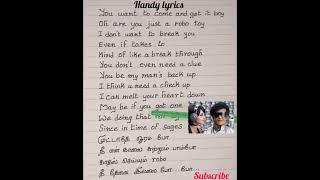 Handy lyrics
You want to come and get it boy
Oh are you just a robo toy
I don't want to break you
Even if takes to
Kind of like a break through
You don't even need a clue
You be my man's back up
I think u need a check up
I can melt your heart down
May be if you got one
We doing that
Since in time of sages
முட்டாதே ஓரம் போ
நீ என் காலை சுற்றும் பாம்போ
காதல் செய்யும் robo
நீ தேவை இல்லை போ.. போ...
Subscribe